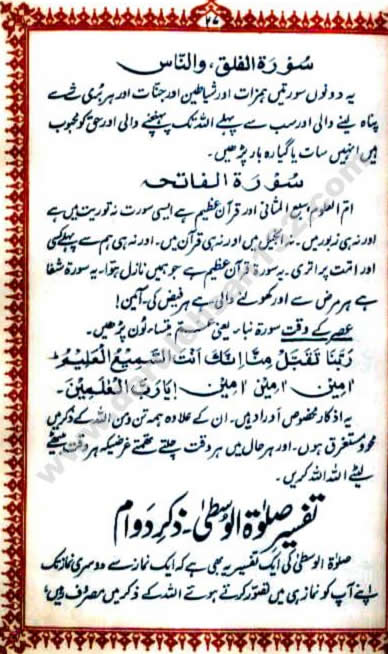 ۲۷
سُورۃ الفلق، والنّاس
یہ دونوں سورتیں ہمزات اور شیاطین اور جنّات اور ہر بُری شے سے
پناہ لینے والی اور سب سے پہلے اللہ تک پہنچنے والی اور حق کو محبوب
ہیں انہیں سات یا گیارہ بار پڑھیں۔
سُورۃ الفاتحہ
امّ العلوم سبع المثانی اور قرآن عظیم ہے ایسی سورت نہ توریت میں ہے
اور نہ ہی زبور میں۔ نہ انجیل میں اور نہ ہی قرآن میں۔ اور نہ ہی ہم سے پہلے کسی
اور امّت پر اتری۔ یہ سورۃ قرآن عظیم ہے جو ہمیں نازل ہوا۔ یہ سورۃ شفا
ہے ہر مرض سے اور کھولنے والی ہے ہر فیض کی۔ آمین!
عصر کے وقت سورۃ نبار یعنی عَمَّ یتساءلون پڑھیں۔
رَبَّنَا تَقَبَّلْ مِنَّا اِنَّكَ اَنْتَ السَّمِیْعُ الْعَلِیْمُ
اٰمِیْن اٰمِیْن اٰمِیْن یَا رَبَّ الْعٰلَمِیْنَ۔
یہ اذکار مخصوص اَوراد ہیں۔ ان کے علاوہ ہمہ تن و من اللہ کے ذکر میں
محو و مستغرق ہوں۔ اور ہر حال میں ہر وقت چلتے تھمتے غرضیکہ ہر وقت بیٹھے
لیٹے اللہ اللہ کریں۔
تفسیر صلوٰۃ الوُسطیٰ۔ ذکرِ دوام
صلوٰۃ الوسطیٰ کی ایک تفسیر یہ بھی ہے کہ ایک نماز سے دوسری نماز تک
اپنے آپ کو نماز ہی میں تصوّر کرتے ہوئے اللہ کے ذکر میں مصروف رہیں،